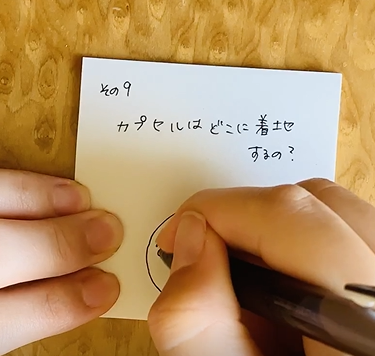 その9
カプセルはどこに着地
するの?